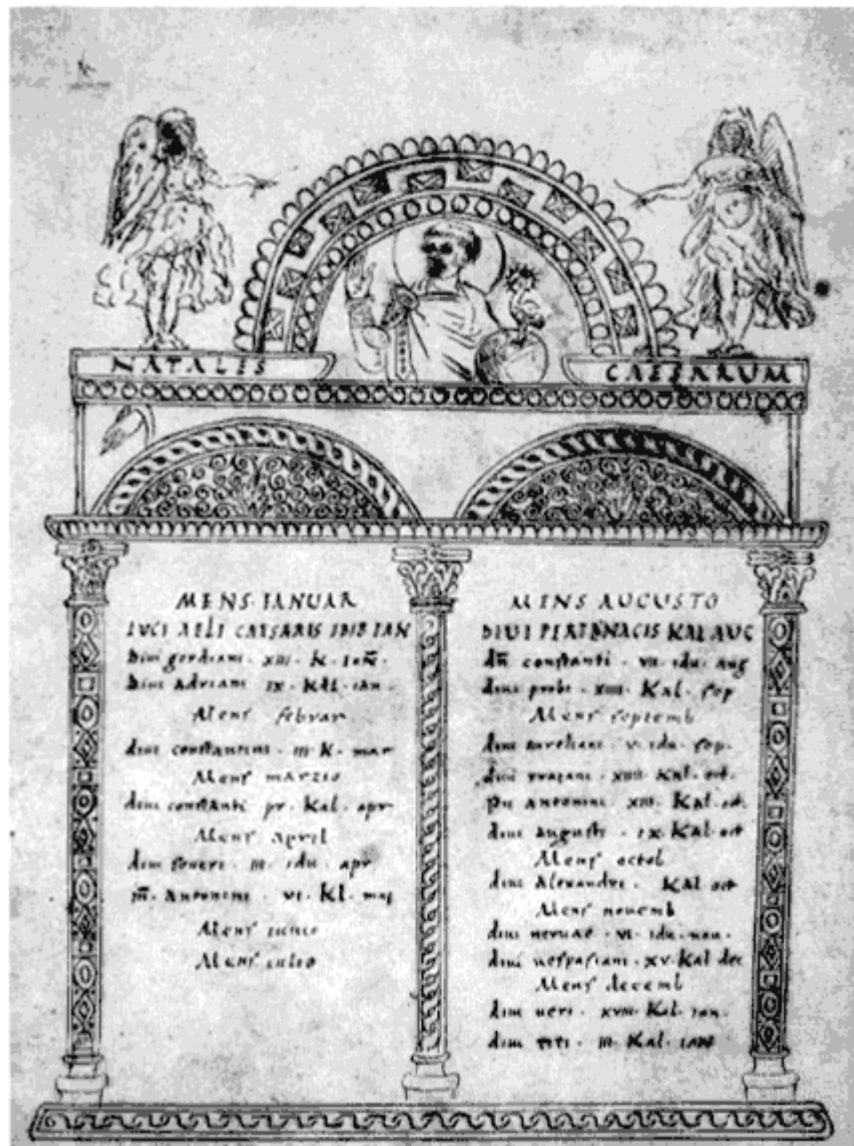 NATALES CAESARUM
MENS·IANUAR
LUCI AELI CAESARIS IDIB IAN
Divi gordiani · XIII · K · IAN̄
Divi Adriani IX · KAL · IAN ·
Mens februar
divi constantini · III · K · mar
Mens marzio
divi constanti pr · Kal · apr
Mens April
divi severi · III · idu · apr
m̄ · Antonini · VI · Kl · mai
Mens iunio
Mens iulio
MENS AUGUSTO
DIVI PERTENACIS KAL AUG
dn̄ constanti · VII · idu · aug
divi probi · XIIII · Kal · sep
Mens septemb
divi aureliani · V · idu · sep ·
divi traiani · XIIII · Kal · oct ·
pii Antonini XIII · Kal · oct ·
divi augusti · IX · Kal · oct
Mens octob
divi Alexandri · Kal oct
Mens novemb
divi nervae · VI · idu · nov ·
divi vespasiani · XV · Kal dec
Mens decemb
divi veri · XVIII · Kal · ian ·
divi titi · III · Kal · ian